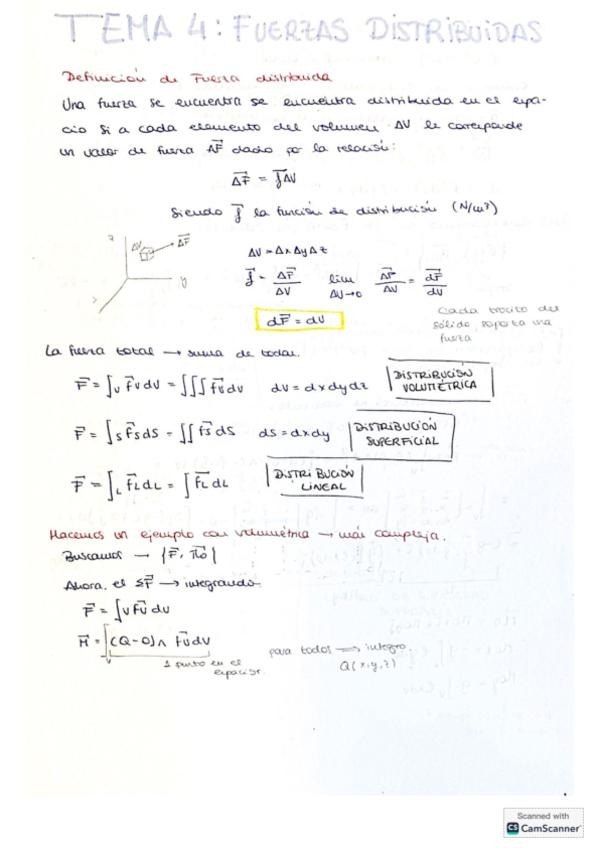 TEMA 4: FUERZAS DISTRIBUIDAS
Definición de Fuerza distribuida
Una fuerza se encuentra se encuentra distribuida en el espa-
cio si a cada elemento del volumen ΔV le corresponde
un valor de fuerza ΔF⃗ dado por la relación:
ΔF⃗ = f⃗ΔV
Siendo f⃗ la función de distribución (N/m³)
z
ΔV
ΔF⃗
y
ΔV = ΔxΔyΔz
f⃗ = ΔF⃗/ΔV lim ΔV→0 ΔF⃗/ΔV = dF⃗/dV
dF⃗ = dV
Cada trocito del
sólido, soporta una
fuerza
La fuerza total → suma de todas.
F⃗ = ∫v f⃗v dv = ∫∫∫ f⃗v dv dv = dxdydz
DISTRIBUCIÓN
VOLUMÉTRICA
F⃗ = ∫s f⃗s ds = ∫∫ f⃗s ds ds = dxdy
DISTRIBUCIÓN
SUPERFICIAL
F⃗ = ∫L f⃗L dL = ∫ f⃗L dL
DISTRIBUCIÓN
LINEAL
Hacemos un ejemplo con volumétria → más compleja.
Buscamos → {F⃗, M⃗o}
Ahora, el ΣF⃗ → integrando.
F⃗ = ∫v f⃗v dv
M⃗ = ∫v (Q-O)∧ f⃗v dv
1 punto en el
espacio.
para todos → integro.
Q(x,y,z)
Scanned with
CS CamScanner